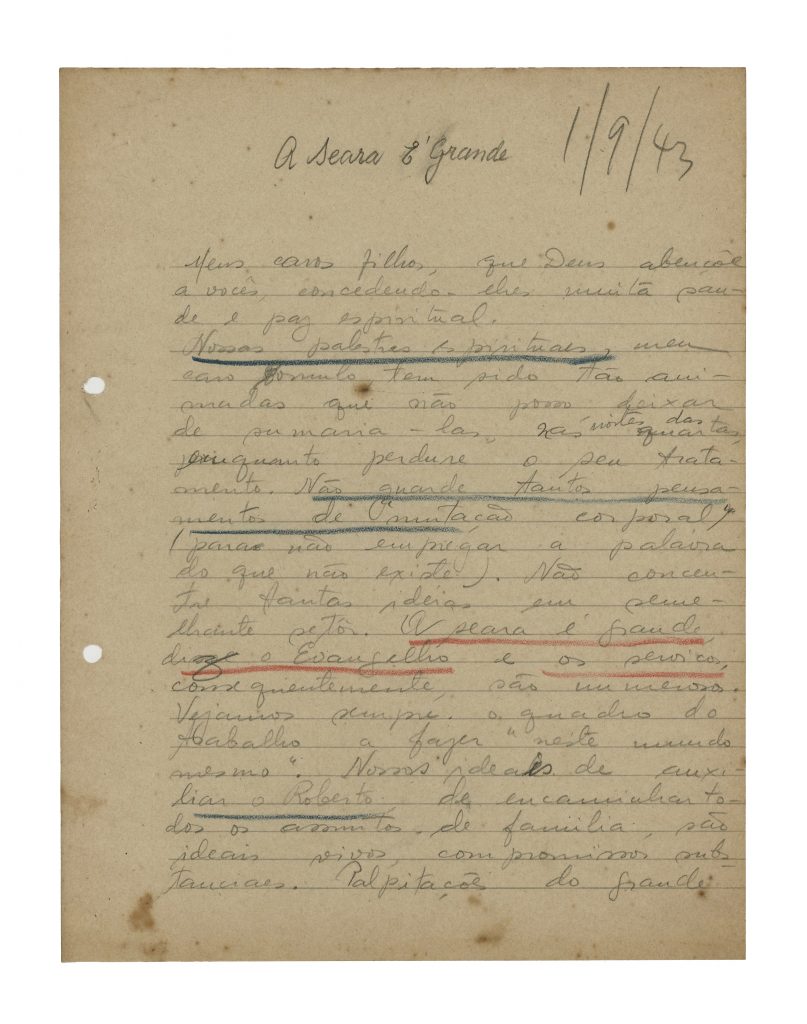 A Seara É Grande
1/9/43
Meus caros filhos, que Deus abençõe
a vocês, concedendo-lhes muita saú-
de e paz espiritual.
Nossas palestras espirituaes, meu
caro Romulo tem sido tão ani-
madas que não posso deixar
de sumaria-las, nas noites das quartas,
enquanto perdure o seu trata-
mento. Não guarde tantos pensa-
mentos de "mutação corporal"
(para não empregar a palavra
do que não existe). Não concen-
tre tantas ideias em seme-
lhante setôr. A seara é grande,
diz o Evangelho e os serviços,
consequentemente, são numerosos.
Vejamos sempre o quadro do
trabalho a fazer "neste mundo
mesmo". Nossos ideais de auxi-
liar o Roberto, de encaminhar to-
dos os assuntos de familia, são
ideais vivos, compromissos subs-
tanciaes. Palpitações do grande